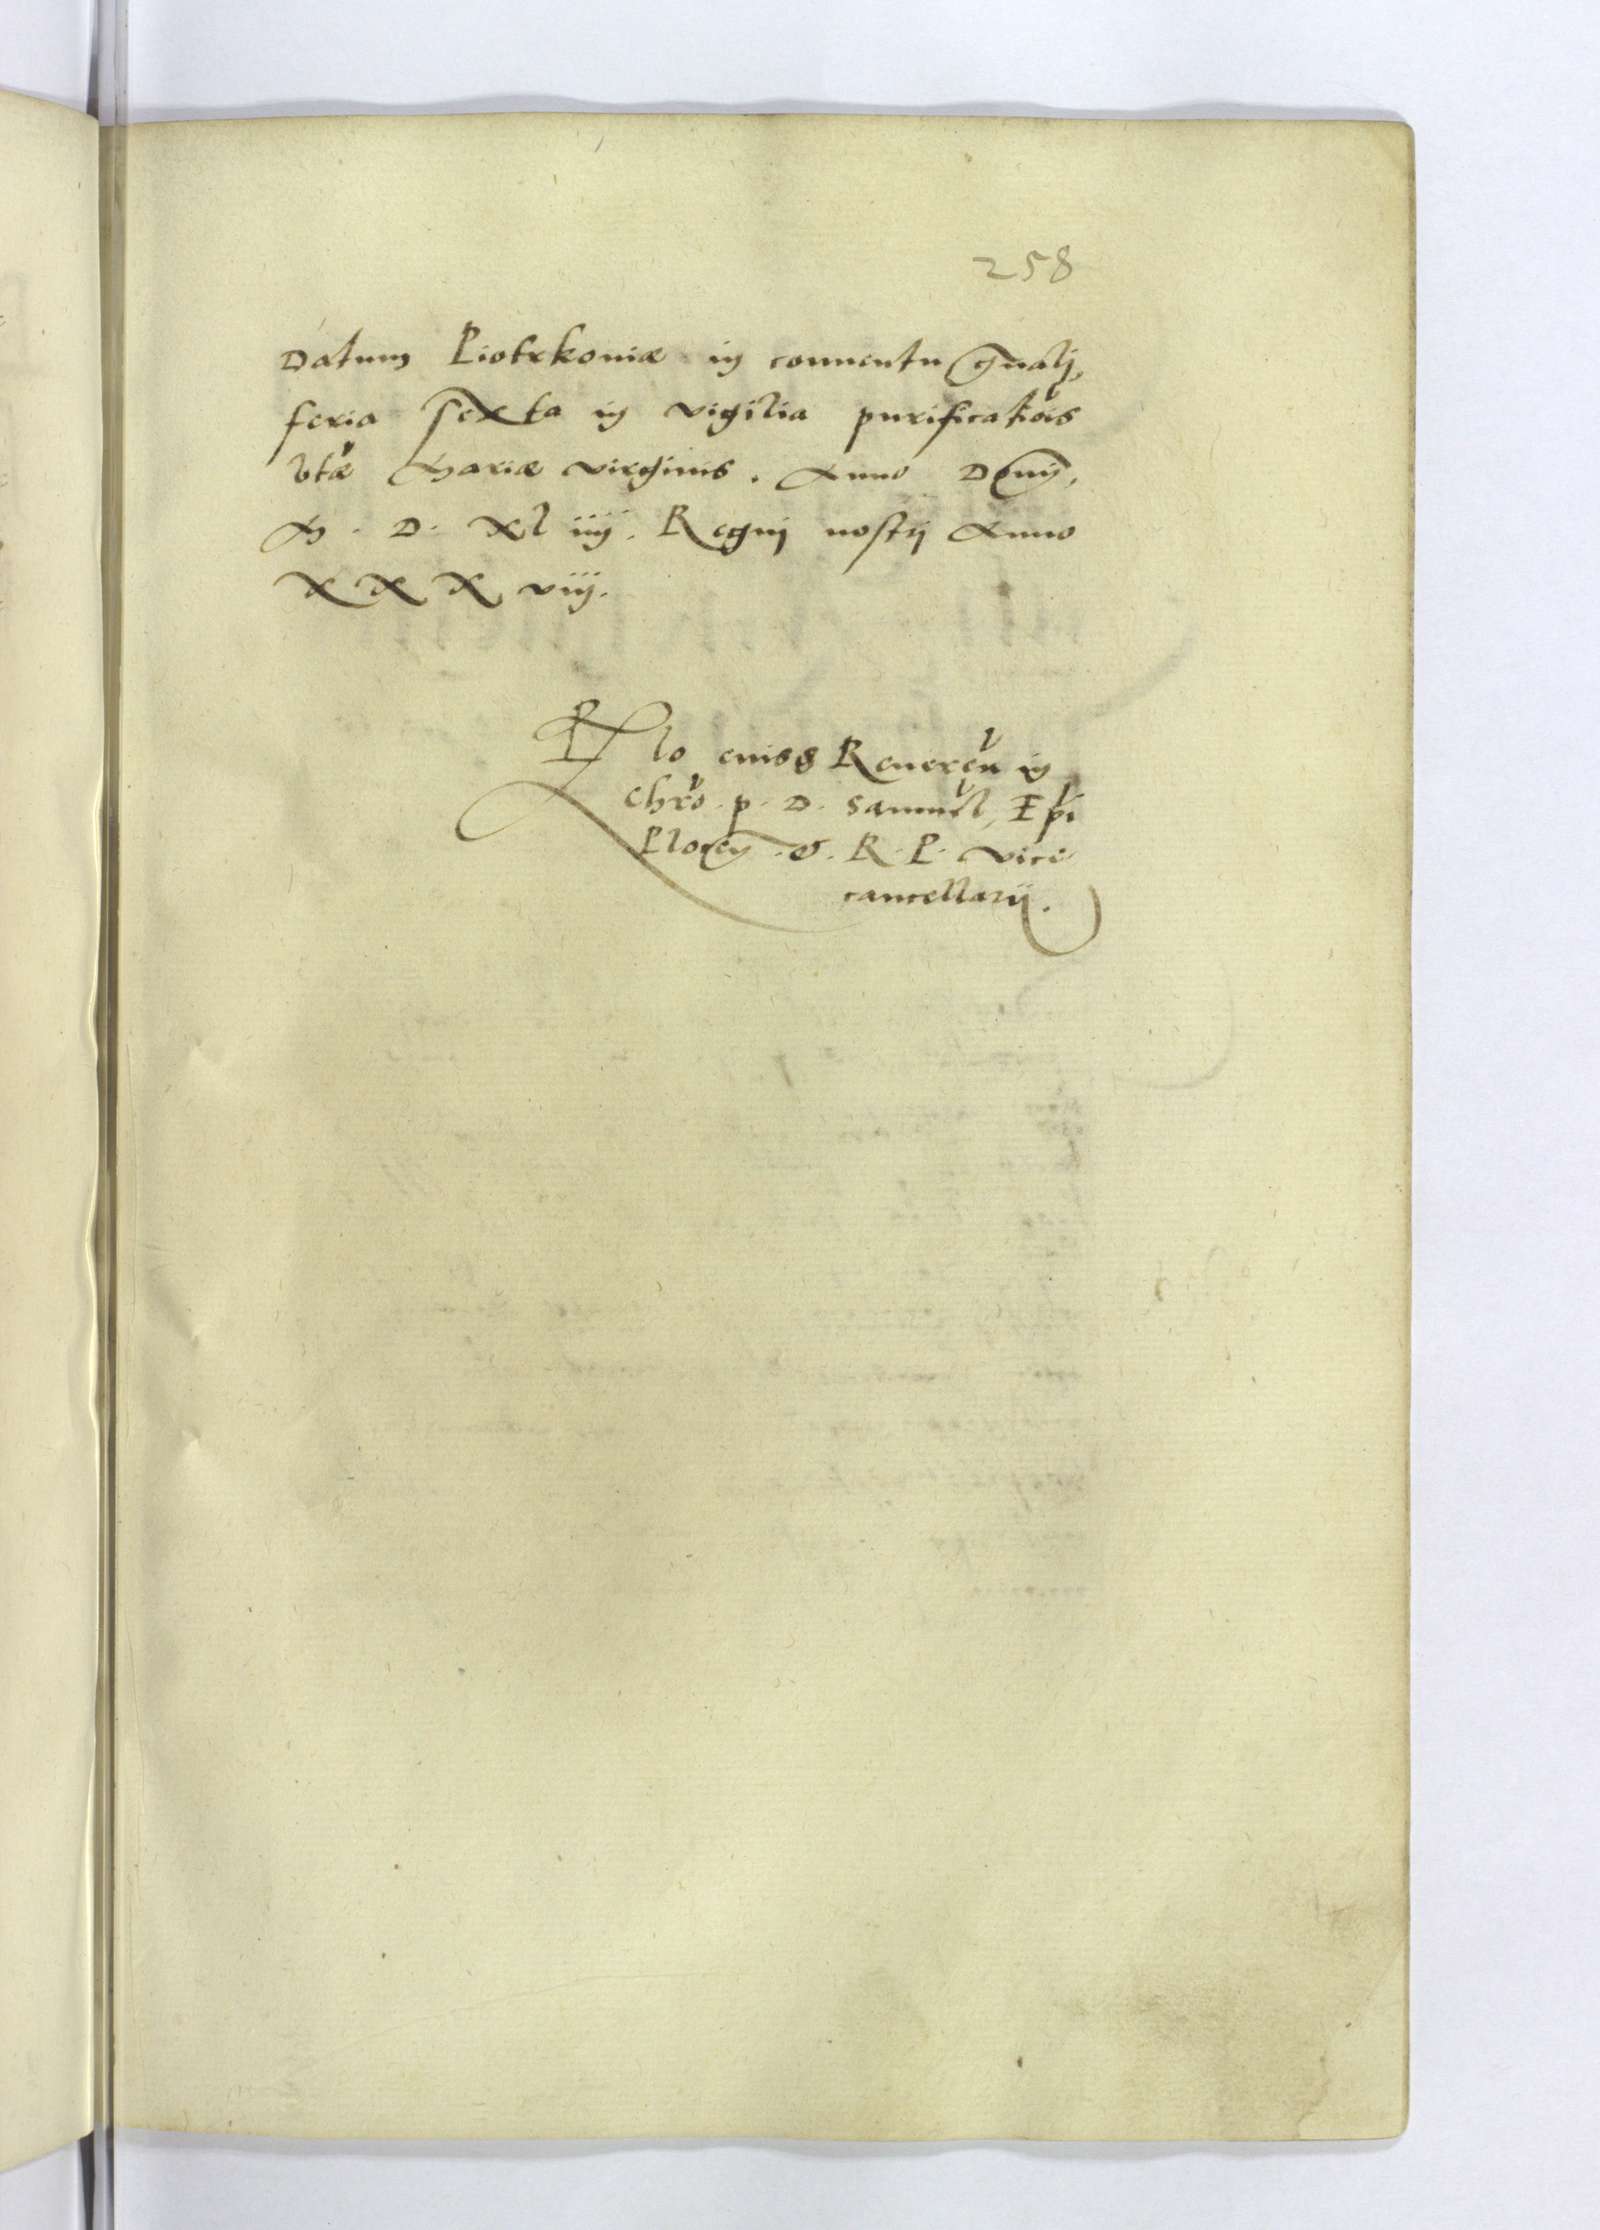 258
Datum Piotrkoviæ in conventu gnali,
feria sexta in vigilia purificatois
btæ Mariæ virginis. Anno Dnij,
M. D. XL iiij. Regni nostri Anno
X X X viij.
Rlo eiusd Reveren in
Chro. p. D. Samuel, Epi
Plocen. & R. P. vice
cancellarij.